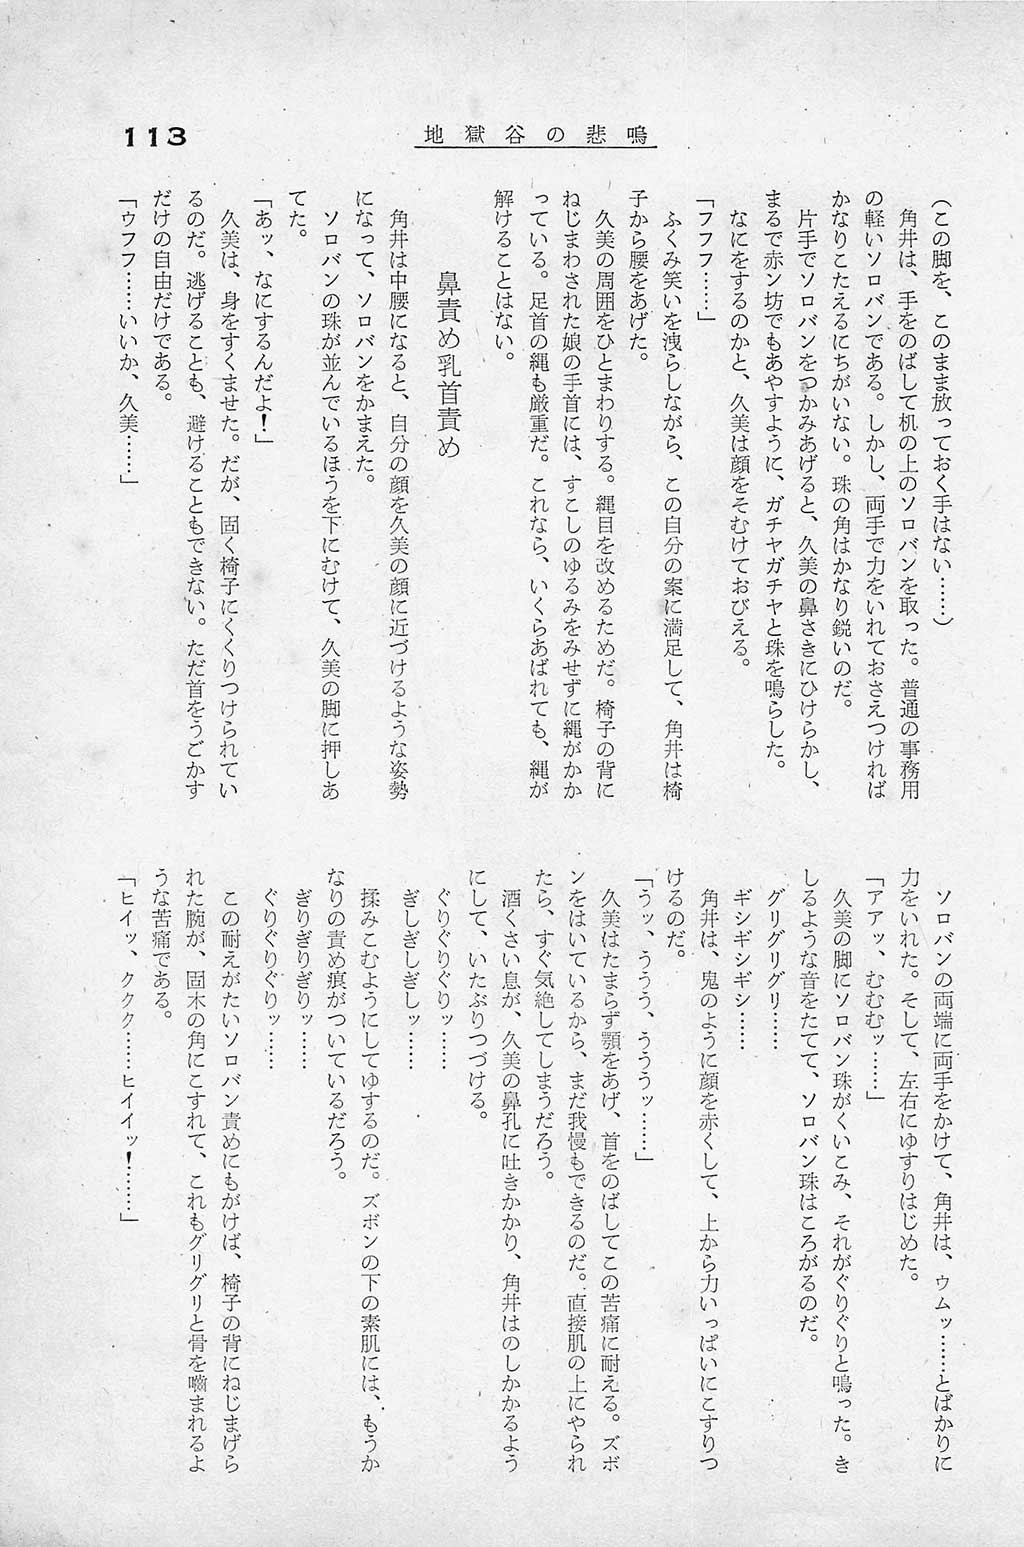 113
地獄谷の悲鳴
（この脚を、このまま放っておく手はない……）
　角井は、手をのばして机の上のソロバンを取った。普通の事務用
の軽いソロバンである。しかし、両手で力をいれておさえつければ
かなりこたえるにちがいない。珠の角はかなり鋭いのだ。
　片手でソロバンをつかみあげると、久美の鼻さきにひけらかし、
まるで赤ン坊でもあやすように、ガチャガチャと珠を鳴らした。
　なにをするのかと、久美は顔をそむけておびえる。
「フフフ……」
　ふくみ笑いを洩らしながら、この自分の案に満足して、角井は椅
子から腰をあげた。
　久美の周囲をひとまわりする。縄目を改めるためだ。椅子の背に
ねじまわされた娘の手首には、すこしのゆるみをみせずに縄がかか
っている。足首の縄も厳重だ。これなら、いくらあばれても、縄が
解けることはない。
鼻責め乳首責め
　角井は中腰になると、自分の顔を久美の顔に近づけるような姿勢
になって、ソロバンをかまえた。
　ソロバンの珠が並んでいるほうを下にむけて、久美の脚に押しあ
てた。
「あッ、なにするんだよ！」
　久美は、身をすくませた。だが、固く椅子にくくりつけられてい
るのだ。逃げることも、避けることもできない。ただ首をうごかす
だけの自由だけである。
「ウフフ……いいか、久美……」
　ソロバンの両端に両手をかけて、角井は、ウムッ……とばかりに
力をいれた。そして、左右にゆすりはじめた。
「アアッ、むむむッ……」
　久美の脚にソロバン珠がくいこみ、それがぐりぐりと鳴った。き
しるような音をたてて、ソロバン珠はころがるのだ。
　グリグリグリ……
　ギシギシギシ……
　角井は、鬼のように顔を赤くして、上から力いっぱいにこすりつ
けるのだ。
「うッ、ううう、うううッ……」
　久美はたまらず顎をあげ、首をのばしてこの苦痛に耐える。ズボ
ンをはいているから、まだ我慢もできるのだ。直接肌の上にやられ
たら、すぐ気絶してしまうだろう。
　酒くさい息が、久美の鼻孔に吐きかかり、角井はのしかかるよう
にして、いたぶりつづける。
　ぐりぐりぐりッ……
　ぎしぎしぎしッ……
　揉みこむようにしてゆするのだ。ズボンの下の素肌には、もうか
なりの責め痕がついているだろう。
　ぎりぎりぎりッ……
　ぐりぐりぐりッ……
　この耐えがたいソロバン責めにもがけば、椅子の背にねじまげら
れた腕が、固木の角にこすれて、これもグリグリと骨を嚙まれるよ
うな苦痛である。
「ヒイッ、ククク……ヒイイッ！……」